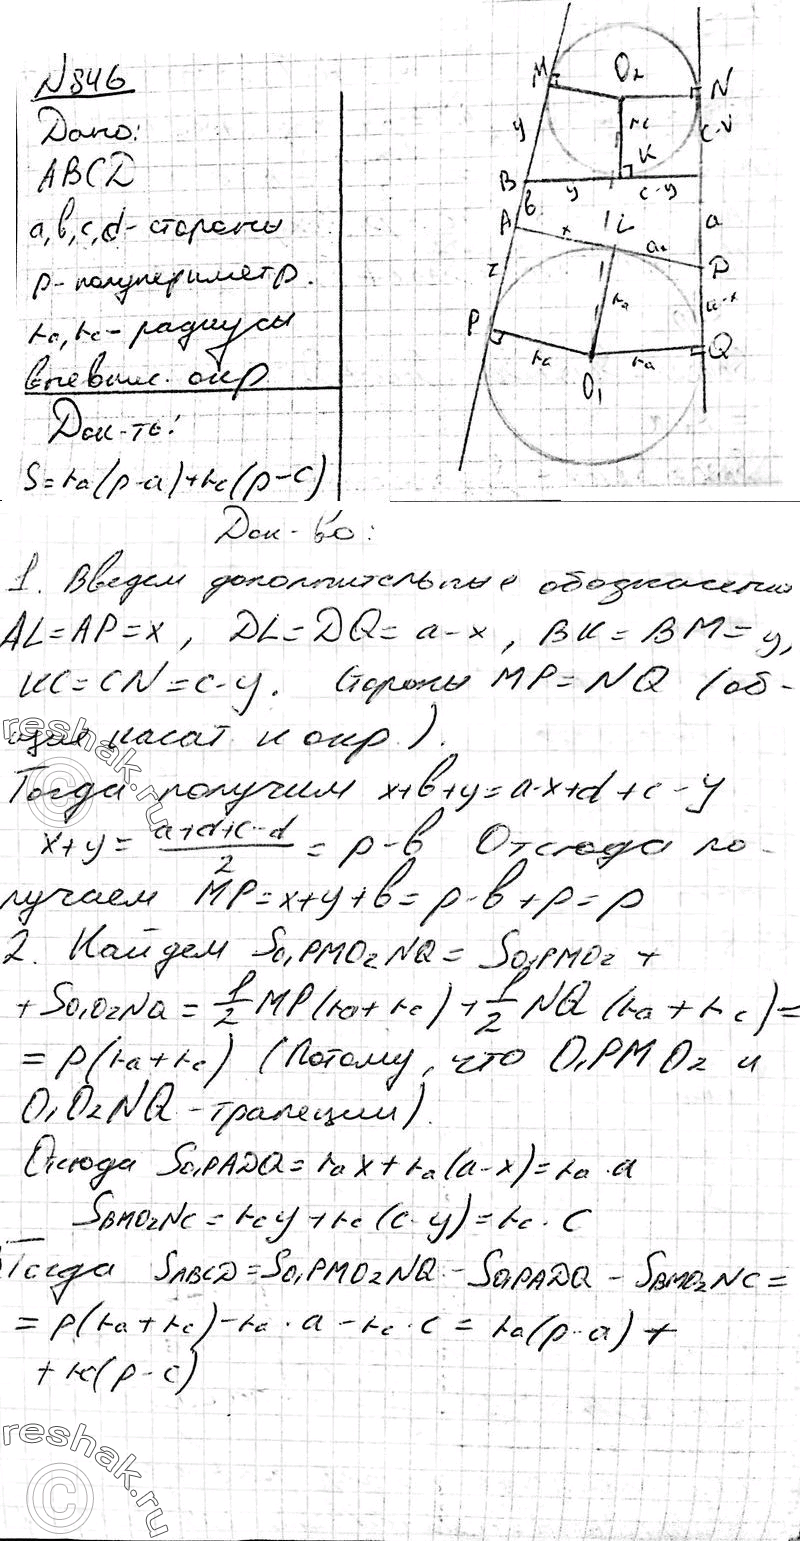 N846
Дано:
ABCD
a,b,c,d - стороны
p - полупериметр.
ra, rc - радиусы
вневпис. окр
Док-ть:
S=ra(p-a)+rc(p-c)
M
O2
N
y
rc
c-y
K
B
y
c-y
b
A
x
L
a
D
ra
a-x
P
ra
ra
Q
O1
Док-во:
1. Введем дополнительные обозначения
AL=AP=x, DL=DQ=a-x, BK=BM=y,
KC=CN=c-y. Стороны MP=NQ (об-
щие касат к окр).
Тогда получим x+b+y=a-x+d+c-y
x+y= (a+d+c-d)/2 = p-b Отсюда по-
лучаем MP=x+y+b=p-b+p=p
2. Найдем SO1PMO2NQ= SO1PMO2+
+SO1O2NQ= 1/2 MP(ra+rc)+1/2 NQ(ra+rc)=
=p(ra+rc) (Потому, что O1PMO2 и
O1O2NQ-трапеции).
Отсюда SO1PADQ=rax+ra(a-x)=ra·a
SBMO2NC=rcy+rc(c-y)=rc·c
Тогда SABCD=SO1PMO2NQ-SO1PADQ-SBMO2NC=
=p(ra+rc)-ra·a-rc·c=ra(p-a)+
+rc(p-c)
reshak.ru
©
reshak.ru
©